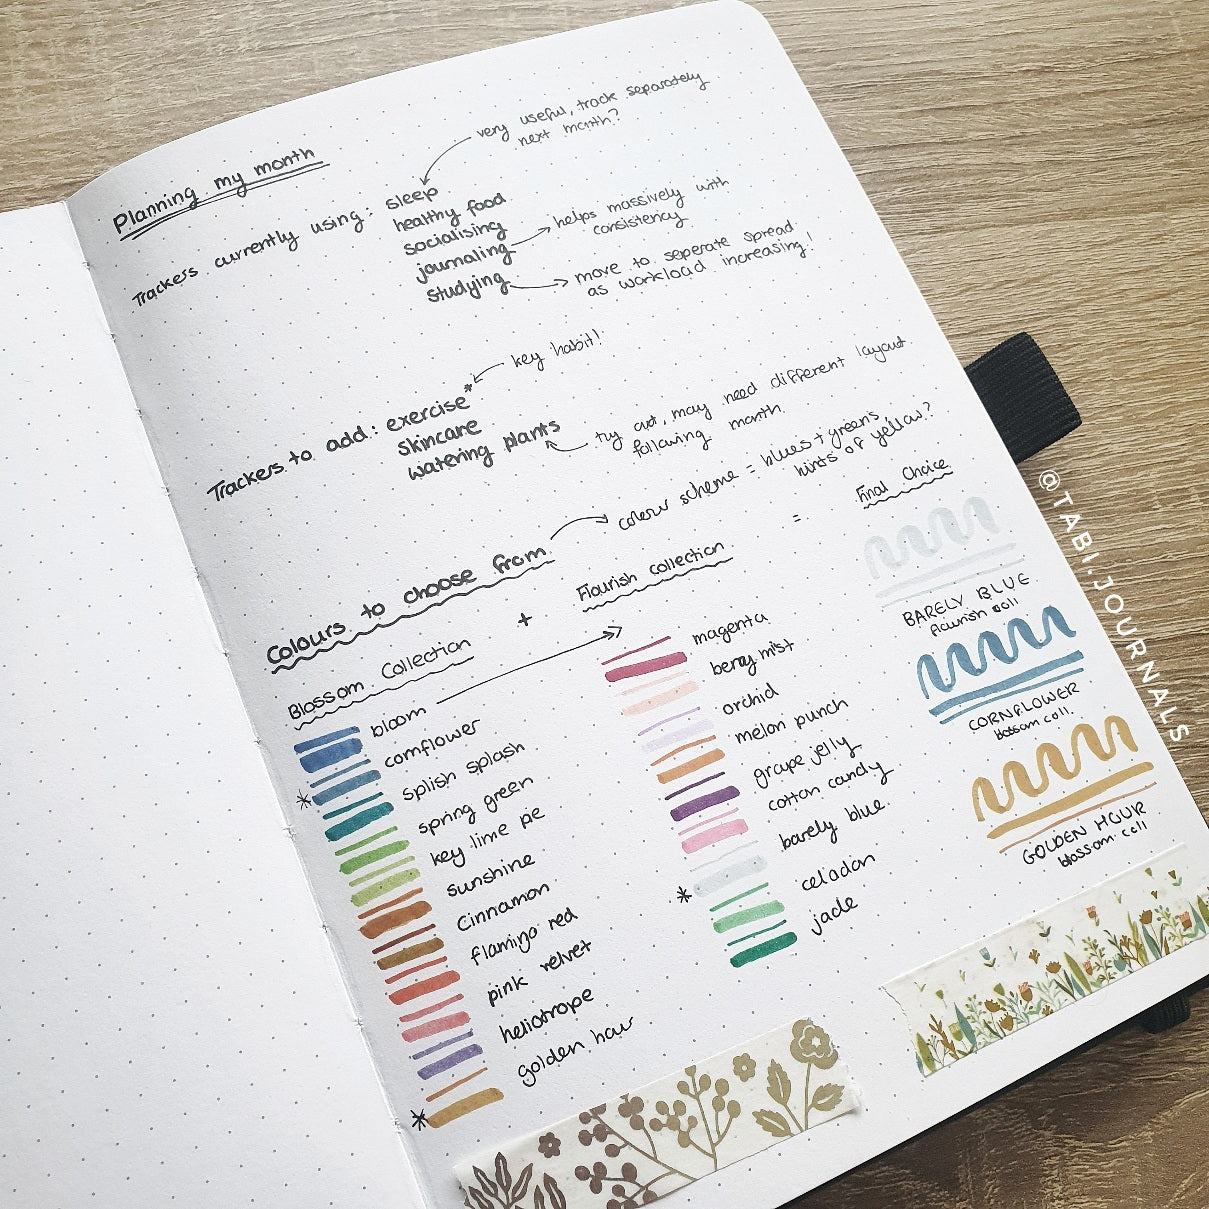 Planning my month
very useful, track separately
next month?
Trackers currently using: sleep
healthy food
socialising
journaling
studying
helps massively with
consistency
move to seperate spread
as workload increasing!
key habit!
Trackers to add: exercise*
skincare
watering plants
try out, may need different layout
following month.
colour scheme = blues + greens
hints of yellow?
Colours to choose from
Blossom Collection + Flourish Collection = Final Choice
bloom
cornflower
splish splash
spring green
key lime pie
sunshine
cinnamon
flamingo red
pink velvet
heliotrope
golden hour
magenta
berry mist
orchid
melon punch
grape jelly
cotton candy
barely blue
celadon
jade
BARELY BLUE
flourish coll
CORNFLOWER
blossom coll.
GOLDEN HOUR
blossom coll
@TABI.JOURNALS